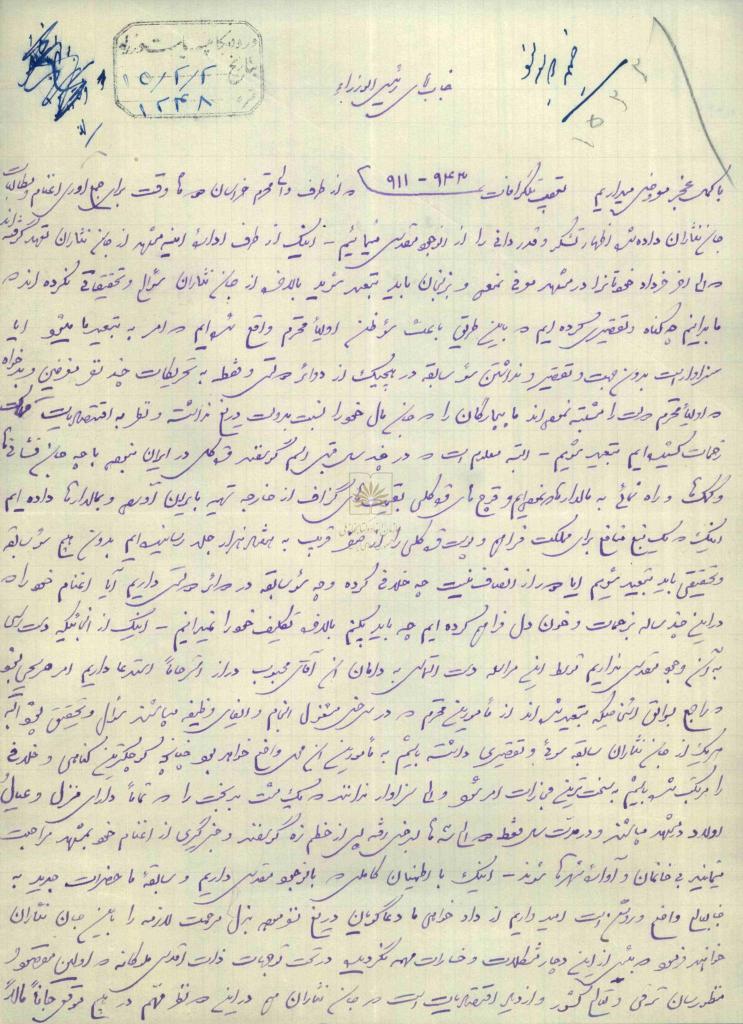 ورود بکابینه ریاست وزراء
تاریخ ۱۵/۲/۲
نمره ۱۲۴۸
۱۵۳۳
جناب آقای رئیس الوزراء
با کمال عجز معروض میداریم تعقیب تلگرافات ۹۴۳ - ۹۱۱ که از طرف والی محترم خراسان که تا وقت برای جمع آوری اغنام و مطالبات
جان نثاران داده شده اظهار تشکر و قدردانی را از آن وجود مقدس مینمائیم - اینک از طرف ادارۀ امنیه مشهد از جان نثاران تعهد گرفته اند
که الی آخر خرداد خودمان را در مشهد معرفی نموده و بزنجان باید تبعید شوید بالاخره از جان نثاران سؤال و تحقیقاتی نکرده اند که
ما بدانیم چه گناه و تقصیری کرده ایم که باین طریق باعث سوءظن اولیاء محترم واقع شده ایم که امر به تبعید ما میشود آیا
سزاوار است بدون جهت و تقصیر و نداشتن سوء سابقه در هیچیک از دوائر دولتی و فقط به تحریکات چند نفر مغرضین و بدخواه
که اولیاء محترم دولت را مشتبه نموده اند ما بیچارگان را که جان و مال خود را نسبت بدولت دریغ نداشته و نظر به اقتصادیات مملکت
زحمات کشیده ایم تبعید شویم - البته معلوم است که در چند سال قبل اسم گوسفند قره گل در ایران نبوده با چه جان فشانی ها
و کمک ها و راه نمائی به مالدارها نموده ایم و قوچ های قره گلی بقیمت های گزاف از خارجه تهیه بایران آورده و بمالدارها داده ایم
اینک که یک منبع منافع برای مملکت فراهم و پوست قره گلی را از صفر قریب به هشتاد هزار جلد رسانیده ایم بدون هیچ سوء سابقه
و تحقیقی باید تبعید شویم آیا دور از انصاف نیست چه خلافی کرده و چه سوء سابقه در دوائر دولتی داریم آیا اغنام خود را که
در این چند ساله بزحمات و خون دل فراهم کرده ایم چه باید بکنیم بالاخره تکلیف خود را نمیدانیم - اینک از آنجائیکه دست رسی
به آن وجود مقدس نداریم توسط این مراسله دست التجاء به دامان آن آقای محبوب دراز استرحاماً استدعا داریم امر صریحی شود
که راجع بواقع اشخاصیکه تبعید شده اند از مأمورین محترم که در سرخس مشغول انجام و ایفای وظیفه میباشند سؤال و تحقیق شود البته
هر یک از جان نثاران سابقه سوء و تقصیری داشته باشیم به مأمورین آن محل واقع خواهد بود چنانچه کوچکترین گناهی و خلافی
را مرتکب شده باشیم به سخت ترین مجازات امر شود والی سزاوار ندانند که یک مشت بدبخت را که تماماً دارای منزل و عیال و
اولاد در مشهد میباشند و در مدت سال فقط دو سه ماه به سرخس رفته پس از ختم زه گوسفند و خبرگیری از اغنام خود بمشهد مراجعت
مینمایند بی خانمان و آوارۀ شهرها شوند - اینک با اطمینان کاملی که بآن وجود مقدس داریم و سابقۀ ما حضرات جدید به
جنابعالی واضح و روشن است امیدواریم از دادخواهی ما دعاگویان دریغ نفرموده بذل مرحمت لازمه را باین جان نثاران
خواهند فرمود که بیش از این دچار مشکلات و خسارات مهم نگردیده در تحت توجهات ذات اقدس ملوکانه که اولین مقصود و
منظورشان ترقی و تعالی کشور و ازدیاد اقتصادیات است که جان نثاران هم در این نظر مهم در هیچ موقع جاناً مالاً